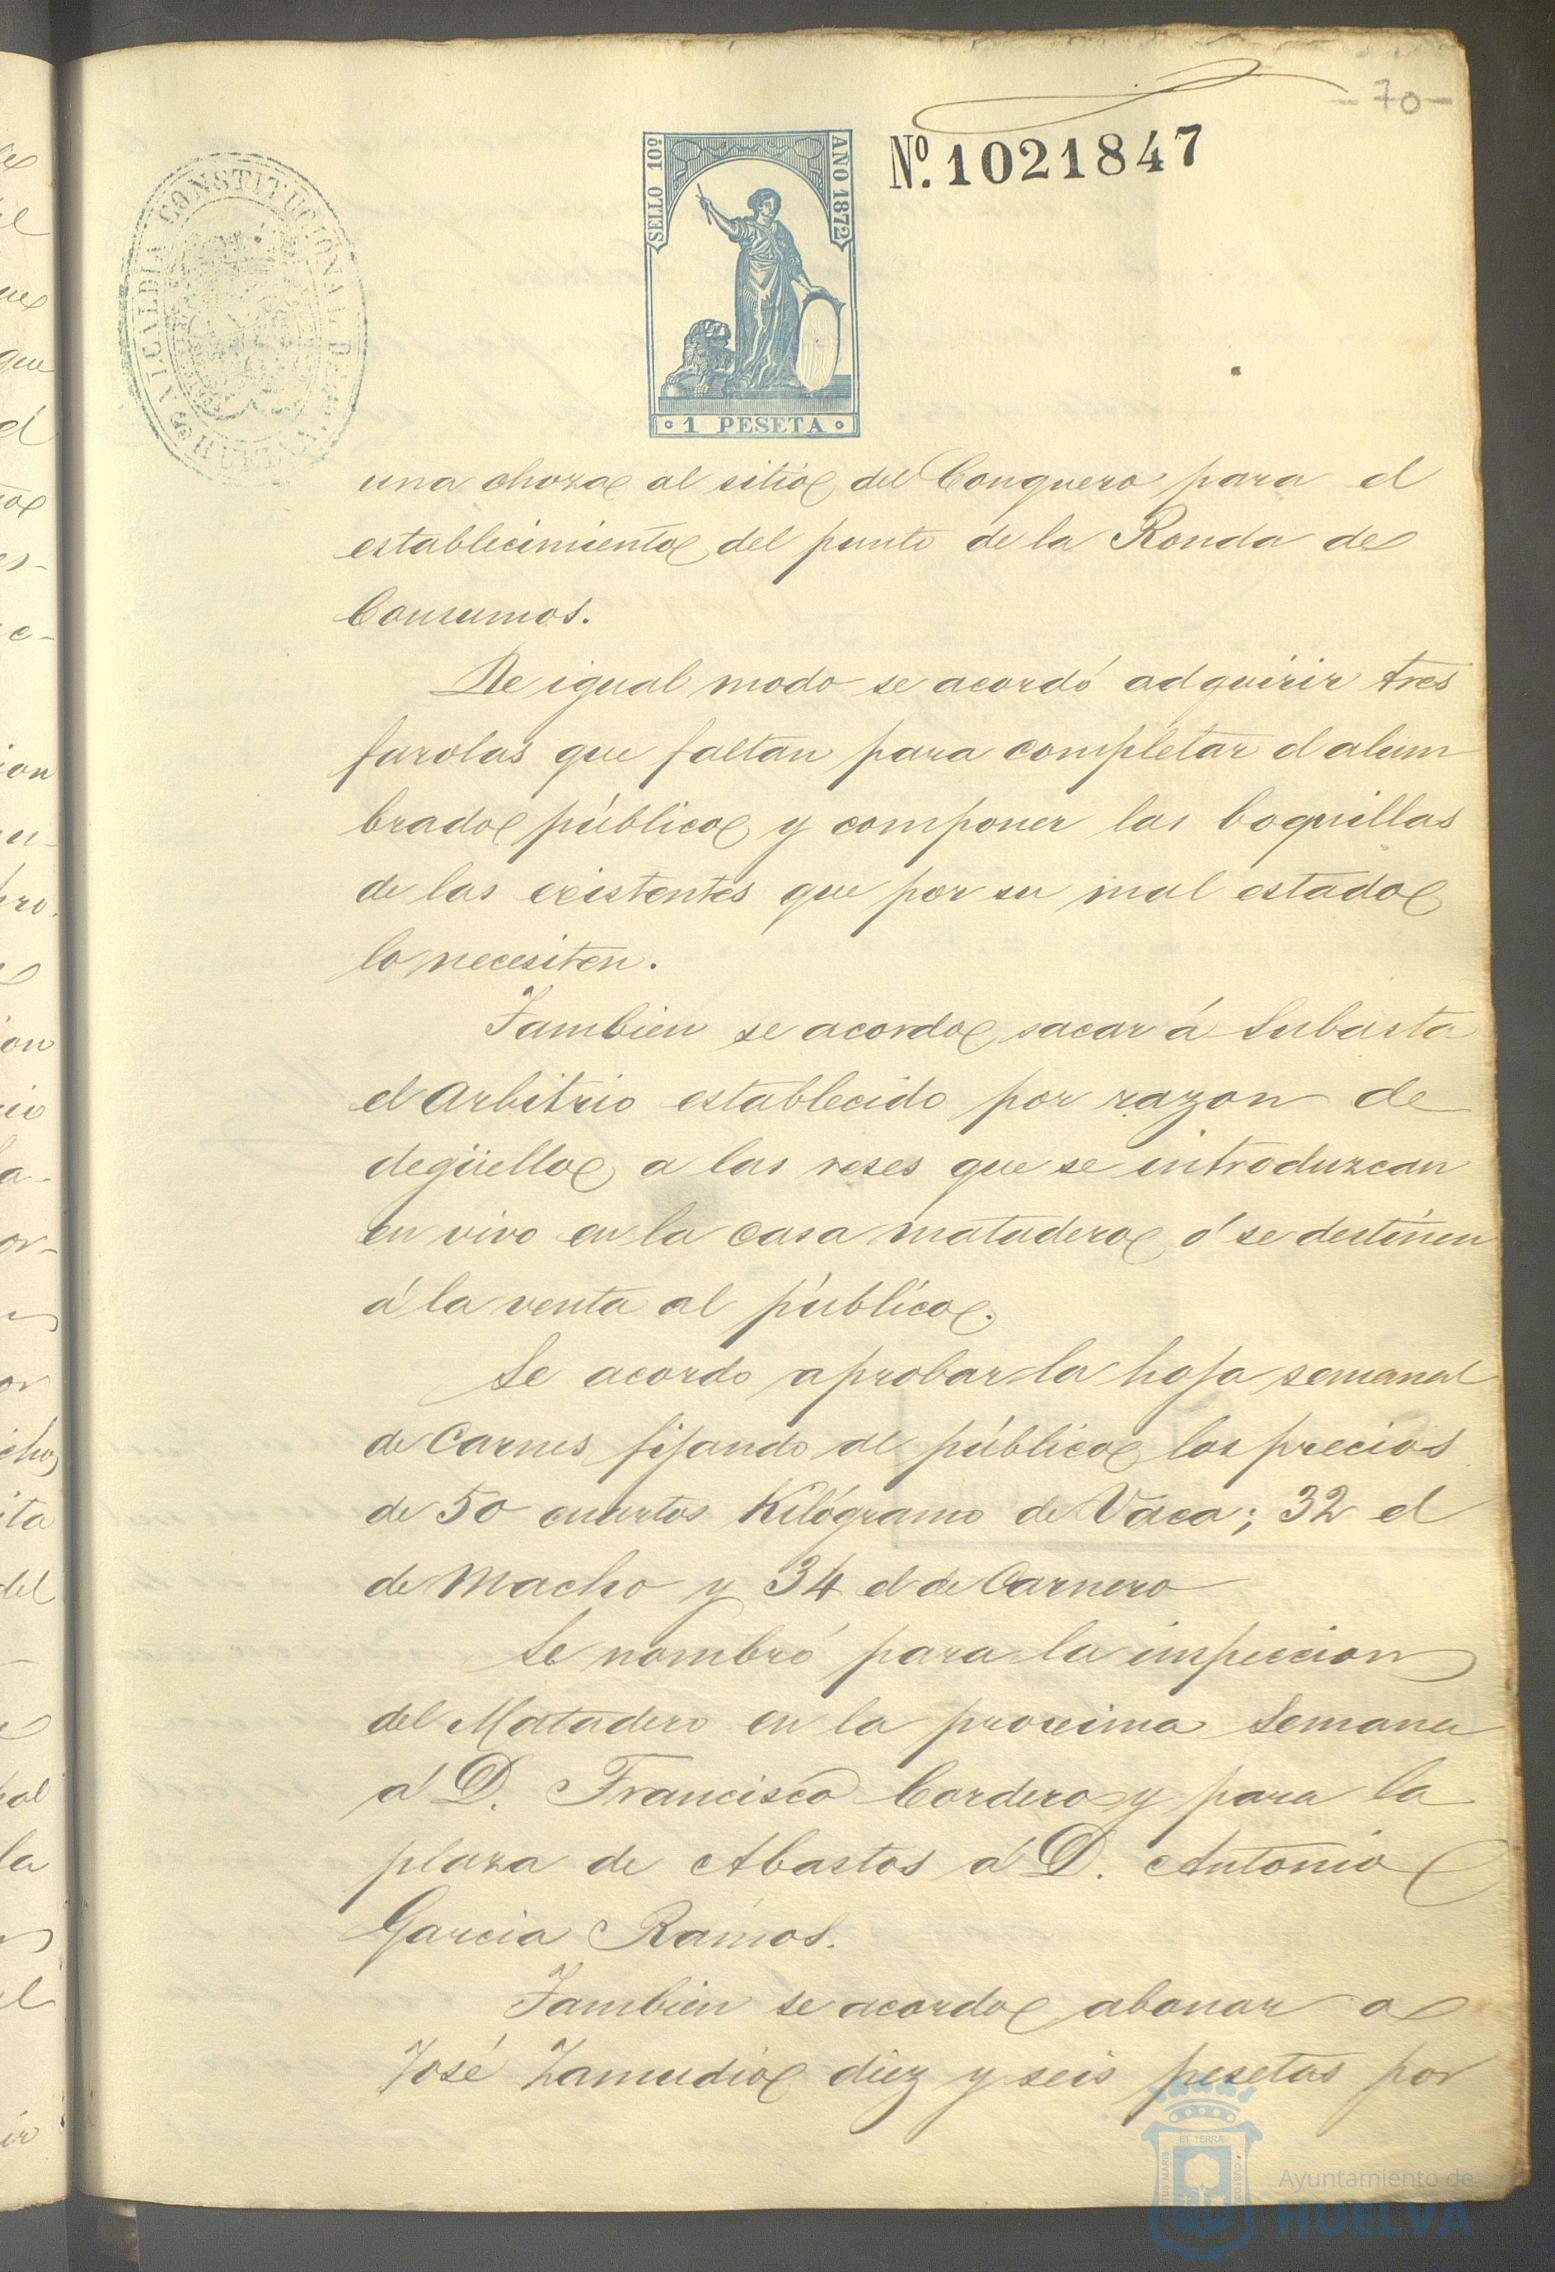 -70-
SELLO 10º
AÑO 1872
1 PESETA
Nº. 1021847
ALCALDIA CONSTITUCIONAL DE HUELVA
una choza al sitio del Conquero para el
establecimiento del punto de la Ronda de
Consumos.
De igual modo se acordó adquirir tres
farolas que faltan para completar el alum
brado público y componer las boquillas
de las existentes que por su mal estado
lo necesiten.
Tambien se acordo sacar á Subasta
el Arbitrio establecido por razon de
degüello a las reses que se introduzcan
en vivo en la casa matadero ó se destinen
á la venta al público.
Se acordo aprobar la hoja semanal
de Carnes fijando al público los precios
de 50 cuartos Kilógramo de Vaca; 32 el
de Macho y 34 el de Carnero
Se nombró para la inspeccion
del Matadero en la proxima Semana
á D. Francisco Cordero y para la
plaza de Abastos á D. Antonio
Garcia Ramos.
Tambien se acordo abonar a
José Zamudio diez y seis pesetas por
Ayuntamiento de
HUELVA